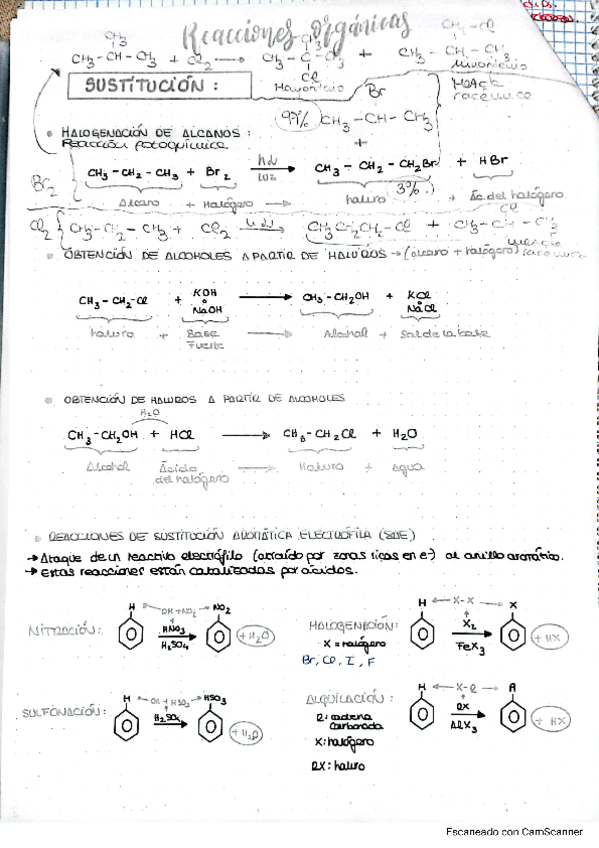 Reacciones orgánicas
CH3
CH3-CH-CH3 + Cl2 → CH3-C-CH3 + CH3-CH-CH3
CH3
CH2-Cl
Cl
Mayoritario
Minoritario
SUSTITUCIÓN :
Br
97% CH3-CH-CH3
+
• HALOGENACIÓN DE ALCANOS :
Reacción fotoquímica
Br2 CH3-CH2-CH3 + Br2 hν luz → CH3-CH2-CH2Br + HBr
Alcano + Halógeno → haluro (3%) + Ác. del halógeno
Cl
Cl2 CH3-CH2-CH3 + Cl2 → CH3CH2CH2-Cl + CH3-CH-CH3
• OBTENCIÓN DE ALCOHOLES A PARTIR DE HALUROS → (alcano + halógeno)
CH3-CH2-Cl + KOH o NaOH → CH3-CH2OH + KCl o NaCl
haluro + Base Fuerte → Alcohol + Sal de la base
• OBTENCIÓN DE HALUROS A PARTIR DE ALCOHOLES
H2O
CH3-CH2OH + HCl → CH3-CH2Cl + H2O
Alcohol Ácido del halógeno → Haluro + Agua
• REACCIONES DE SUSTITUCIÓN AROMÁTICA ELECTRÓFILA (SAE)
→ Ataque de un reactivo electrófilo (atraído por zonas ricas en e-) al anillo aromático.
→ Estas reacciones están catalizadas por ácidos.
NITRACIÓN: H OH + NO2 NO2 HNO3 H2SO4 + H2O
HALOGENACIÓN: H X-X X X2 FeX3 + HX
X = halógeno
Br, Cl, I, F
SULFONACIÓN: H OH + HSO3 HSO3 H2SO4 + H2O
ALQUILACIÓN: H X-R R RX AlX3 + HX
R: cadena carbonada
X: halógeno
RX: haluro
Escaneado con CamScanner